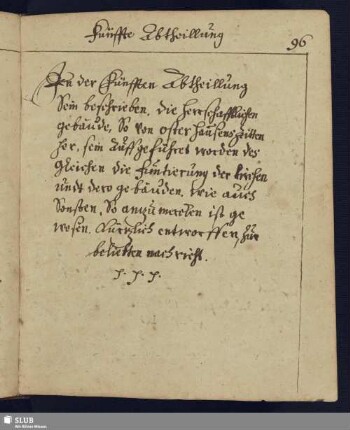 Fünffte Abtheillung
96
In der Fünfften Abtheillung
Sein beschrieben, die Herrschafftlichen
gebäude, So von osterhausens zeitten
her, sein auffgeführet worden des
gleichen die Funtierung der Kirchen
undt dero gebäuden, wie auch
Sonsten, So anzumercken ist ge
wesen. Kürtzlich entworffen, zur
beliebten nachricht.
SLUB
Wir führen Wissen.